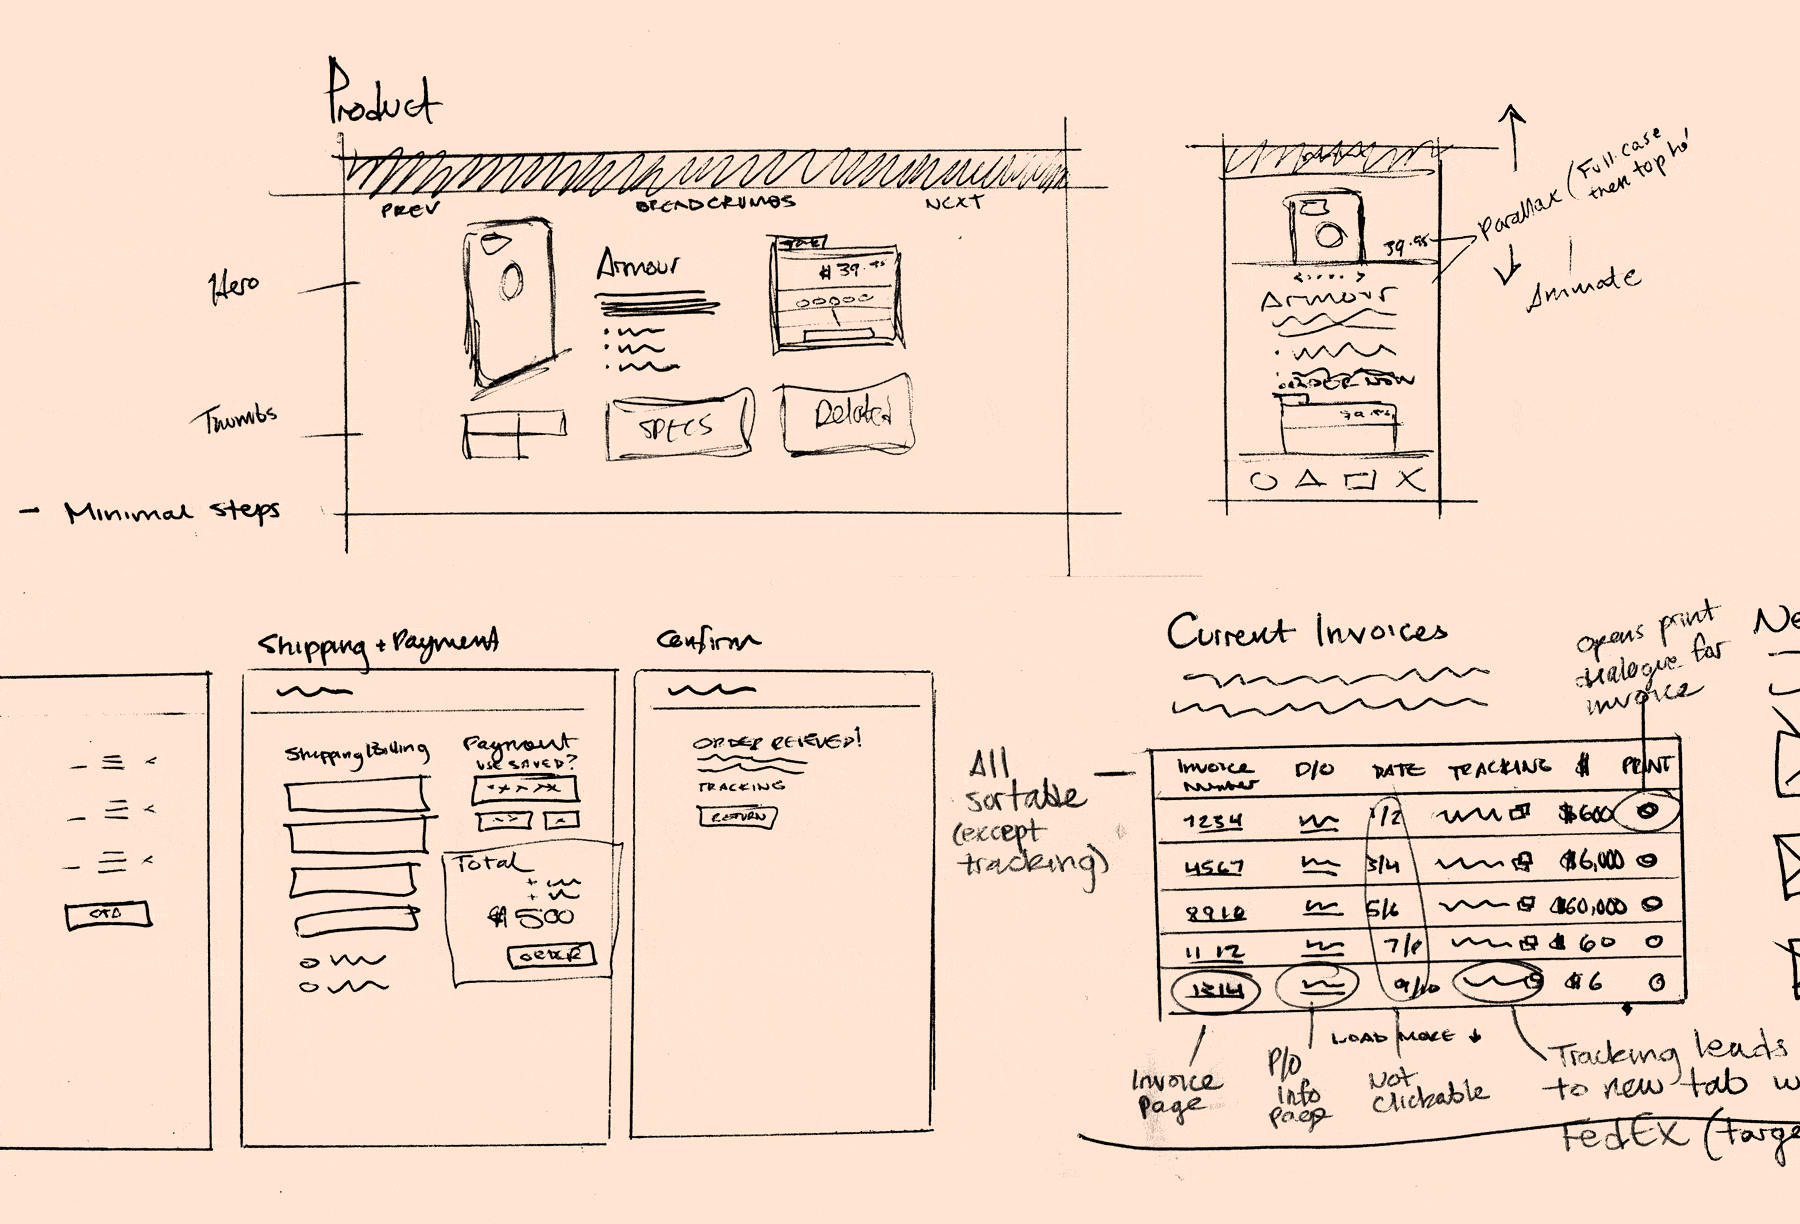 Product
PREV BREADCRUMBS NEXT
Hero
Armour
$39.95
Thumbs
SPECS
Related
- Minimal steps
39.95
Parallax (Full case
then top
Animate
ARMOUR
ORDER NOW
39.95
Shipping + Payment
Shipping/Billing
Payment
USE SAVED?
Total
$500
ORDER
CTA
Confirm
ORDER RECIEVED!
TRACKING
RETURN
Current Invoices
opens print
dialogue for
invoice
All
sortable
(except
tracking)
Invoice
Number
DATE TRACKING $ PRINT
1234 1/2 $600
4567 3/4 $6,000
8910 5/6 $60,000
1112 7/8 $60
1314 9/10 $6
LOAD MORE ↓
Invoice
Page
P/O
Info
Not
Clickable
Tracking leads
to new tab
FedEX